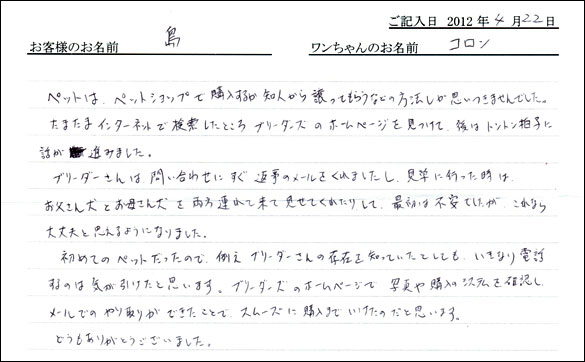 ご記入日 2012 年 4 月 22 日
お客様のお名前 島 ワンちゃんのお名前 コロン
ペットは、ペットショップで購入するか知人から譲ってもらうなどの方法しか思いつきませんでした。
たまたまインターネットで検索したところブリーダーズのホームページを見つけて、後はトントン拍子に
話が進みました。
ブリーダーさんは、問い合わせにすぐ返事のメールをくれましたし、見学に行った時は、
お父さん犬とお母さん犬を両方連れて来て見せてくれたりして、最初は不安でしたが、これなら
大丈夫と思えるようになりました。
初めてのペットだったので、例えブリーダーさんの存在を知っていたとしても、いきなり電話
するのは気が引けたと思います。ブリーダーズのホームページで写真や購入のシステムを確認し、
メールでのやり取りができたことで、スムーズに購入までいけたのだと思います。
どうもありがとうございました。